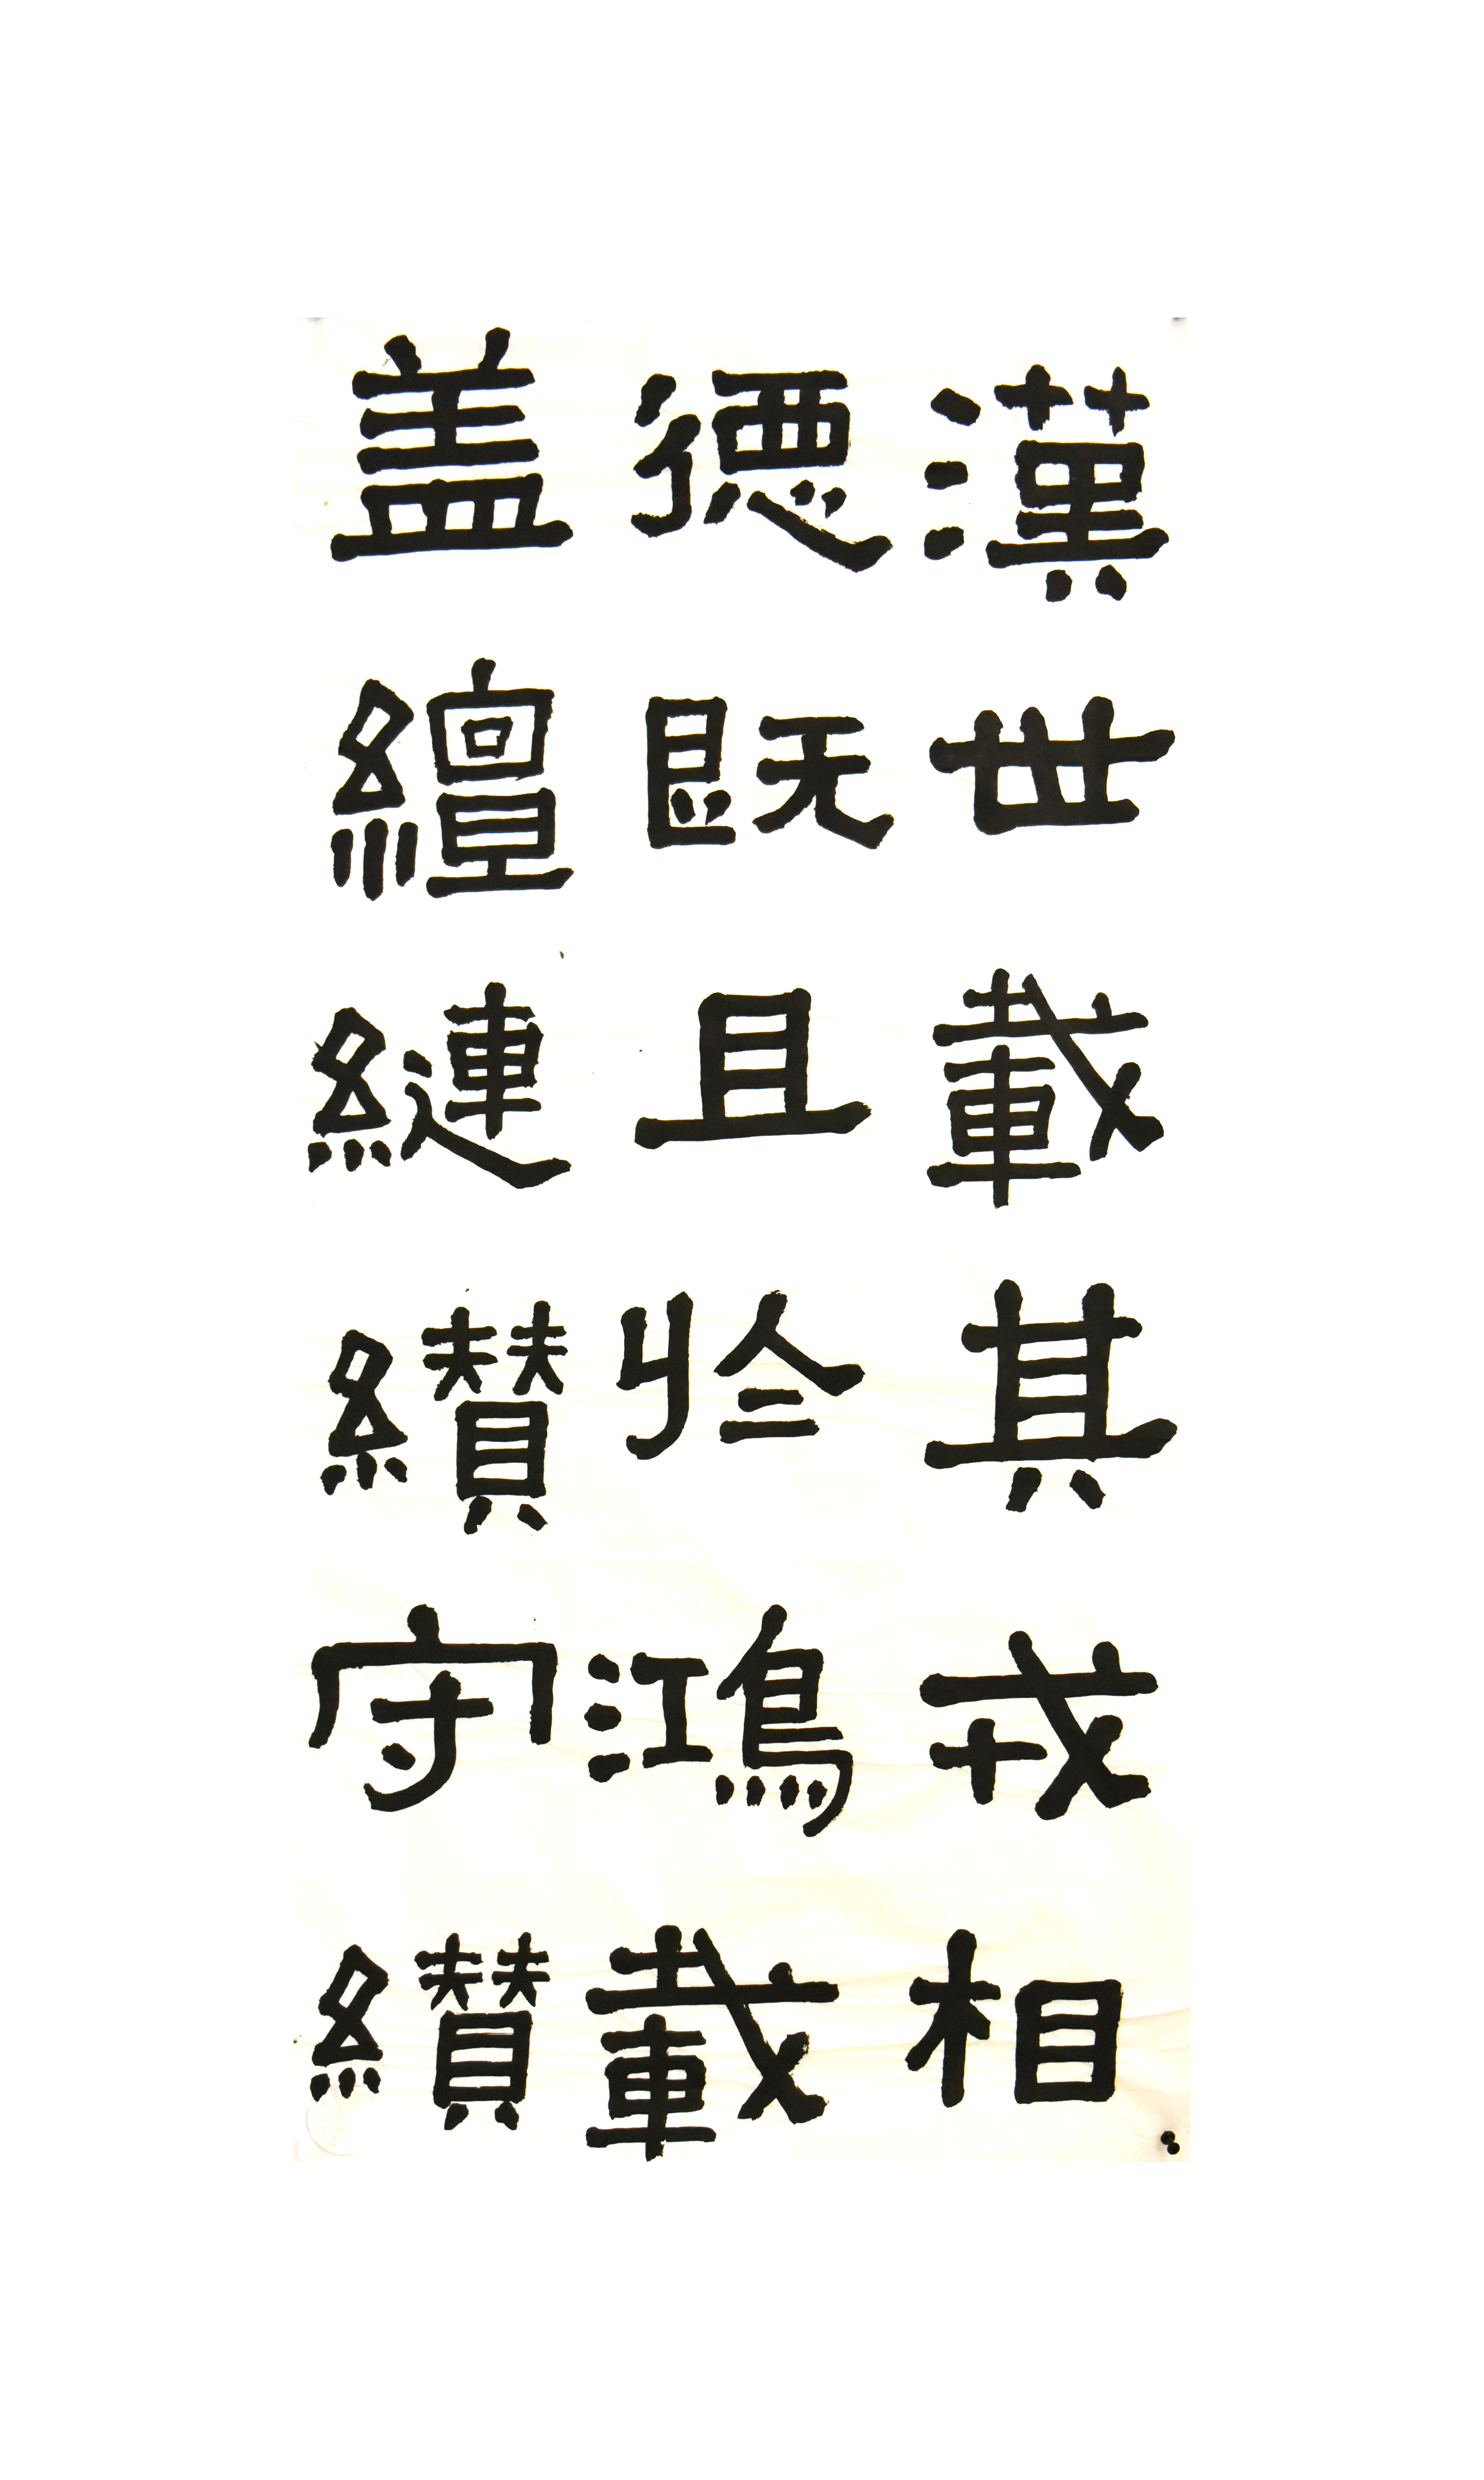 漢世載其戎相
德既且於鴻載
盖繵縺纘守纘